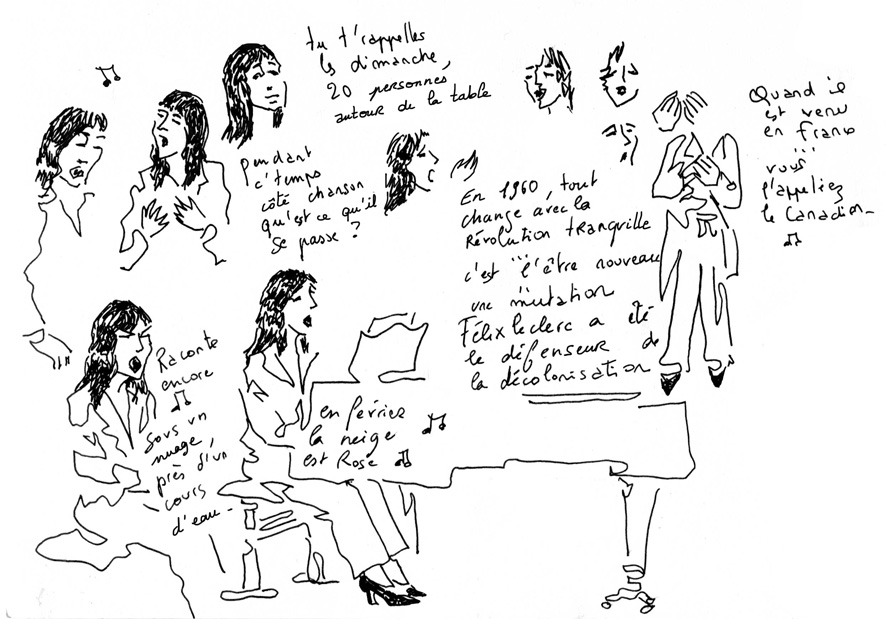 tu t'rappelles
les dimanche,
20 personnes
autour de la table
Quand il
est venu
en France
...
vous
l'appeliez
le Canadien_
pendant
c'temps
côté chanson
qu'est ce qu'il
se passe ?
En 1960, tout
change avec la
Révolution tranquille
c'est "l'être nouveau
une mutation
Félix Leclerc a été
le défenseur de
la décolonisation
Raconte
encore
Sous un
nuage,
près d'un
cours
d'eau_
en février
la neige
est Rose